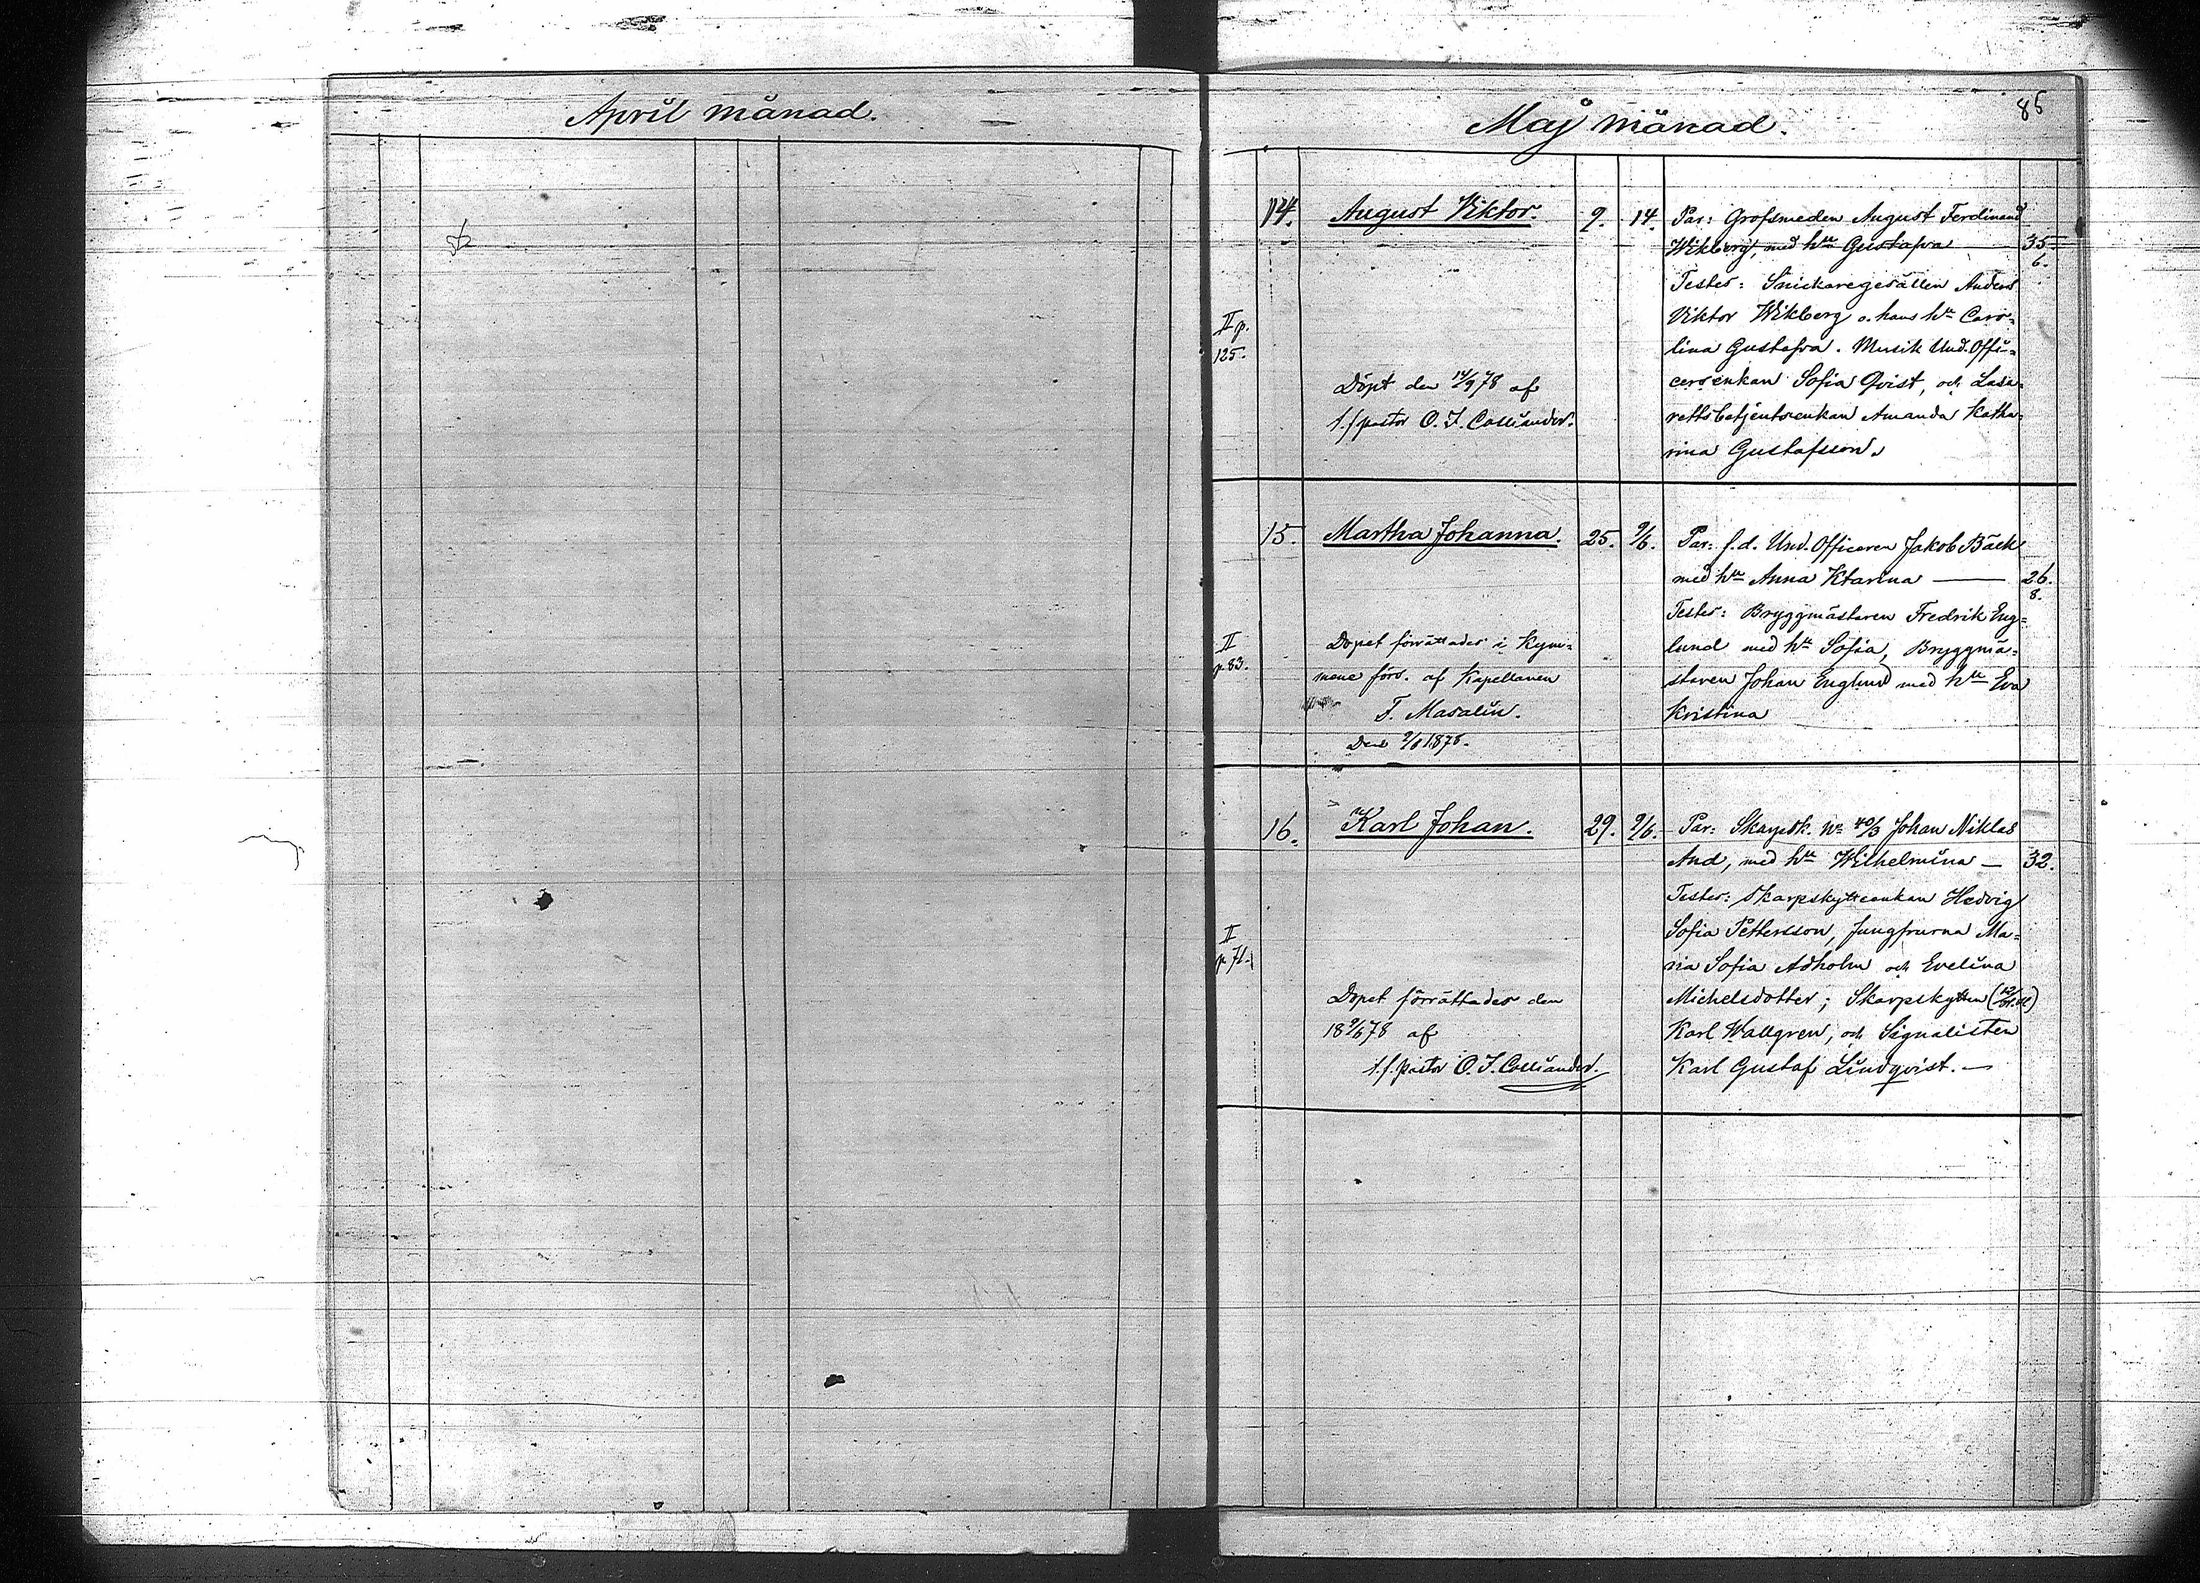 April månad.
Maj månad.
85
14. August Viktor. 9. 14. Par: Grofsmeden August Ferdinand
Wikberg, med hu Gustafva 35
6.
Testes: Snickaregesällen Anders
II p. Viktor Wikberg o. hans hu Caro-
125. lina Gustafva. Musik Und. Offi-
Döpt den 14/9 78 af cersenkan Sofia Qvist, och Lasa-
t.f pastor O. I. Colliander. rettsbetjentsenkan Amanda Katha-
rina Gustafsson.
15. Martha Johanna. 25. 9/6. Par: f.d. Und. Officeren Jakob Bäck
med hu Anna Ktarina 26.
8.
Testes: Bryggmästaren Fredrik Eng-
II Dopet förrättades i Kym- lund med hu Sofia, Bryggmä-
p.83. mene förs. af Kapellanen staren Johan Englund med hu Eva
F. Masalin. Kristina
Den 9/6 1878.
16. Karl Johan. 29. 9/6. Par: Skarpsk. No 40/3 Johan Niklas
And, med hu Wilhelmina 32.
Testes: Skarpskytteenkan Hedvig
II Sofia Pettersson, Jungfrurna Ma-
p 71. ria Sofia Adholm och Evelina
Dopet förrättades den Michelsdotter; Skarpskytten
18 9/6 78 af Karl Wallgren, och Signalisten
t.f. pastor O. I. Colliander. Karl Gustaf Lindqvist.